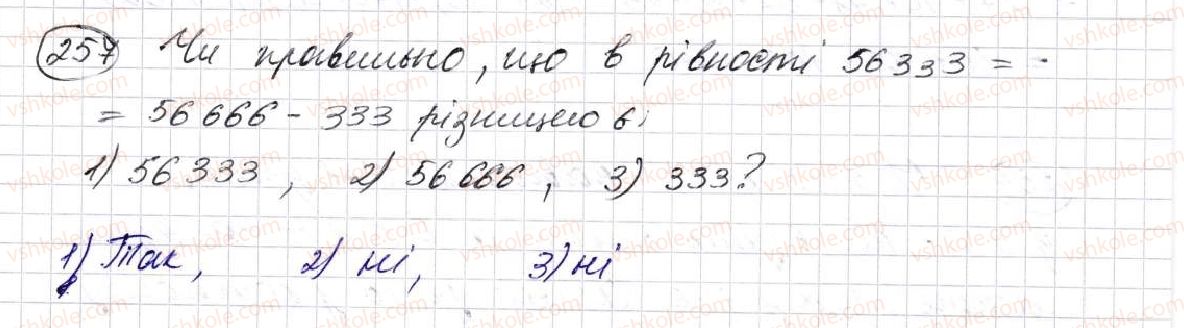 257 Чи правильно, що в рівності 56333 =
= 56666 - 333 різницею є:
1) 56333, 2) 56666, 3) 333?
1) Так, 2) ні, 3) ні